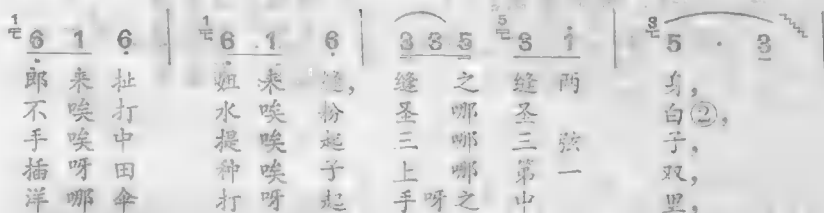 1 6 1 6 | 1 6 1 6 | 3 3 5 5 3 i | 3 5 · 3
郎 来 扯 妞 来 缝 之 缝 两 身,
不 唉 打 水 唉 粉 圣 哪 圣 白②,
手 唉 中 提 唉 起 三 哪 三 弦 子,
插 呀 田 种 唉 子 上 哪 第 一 双,
洋 哪 伞 打 呀 起 手 呀 之 中 里,